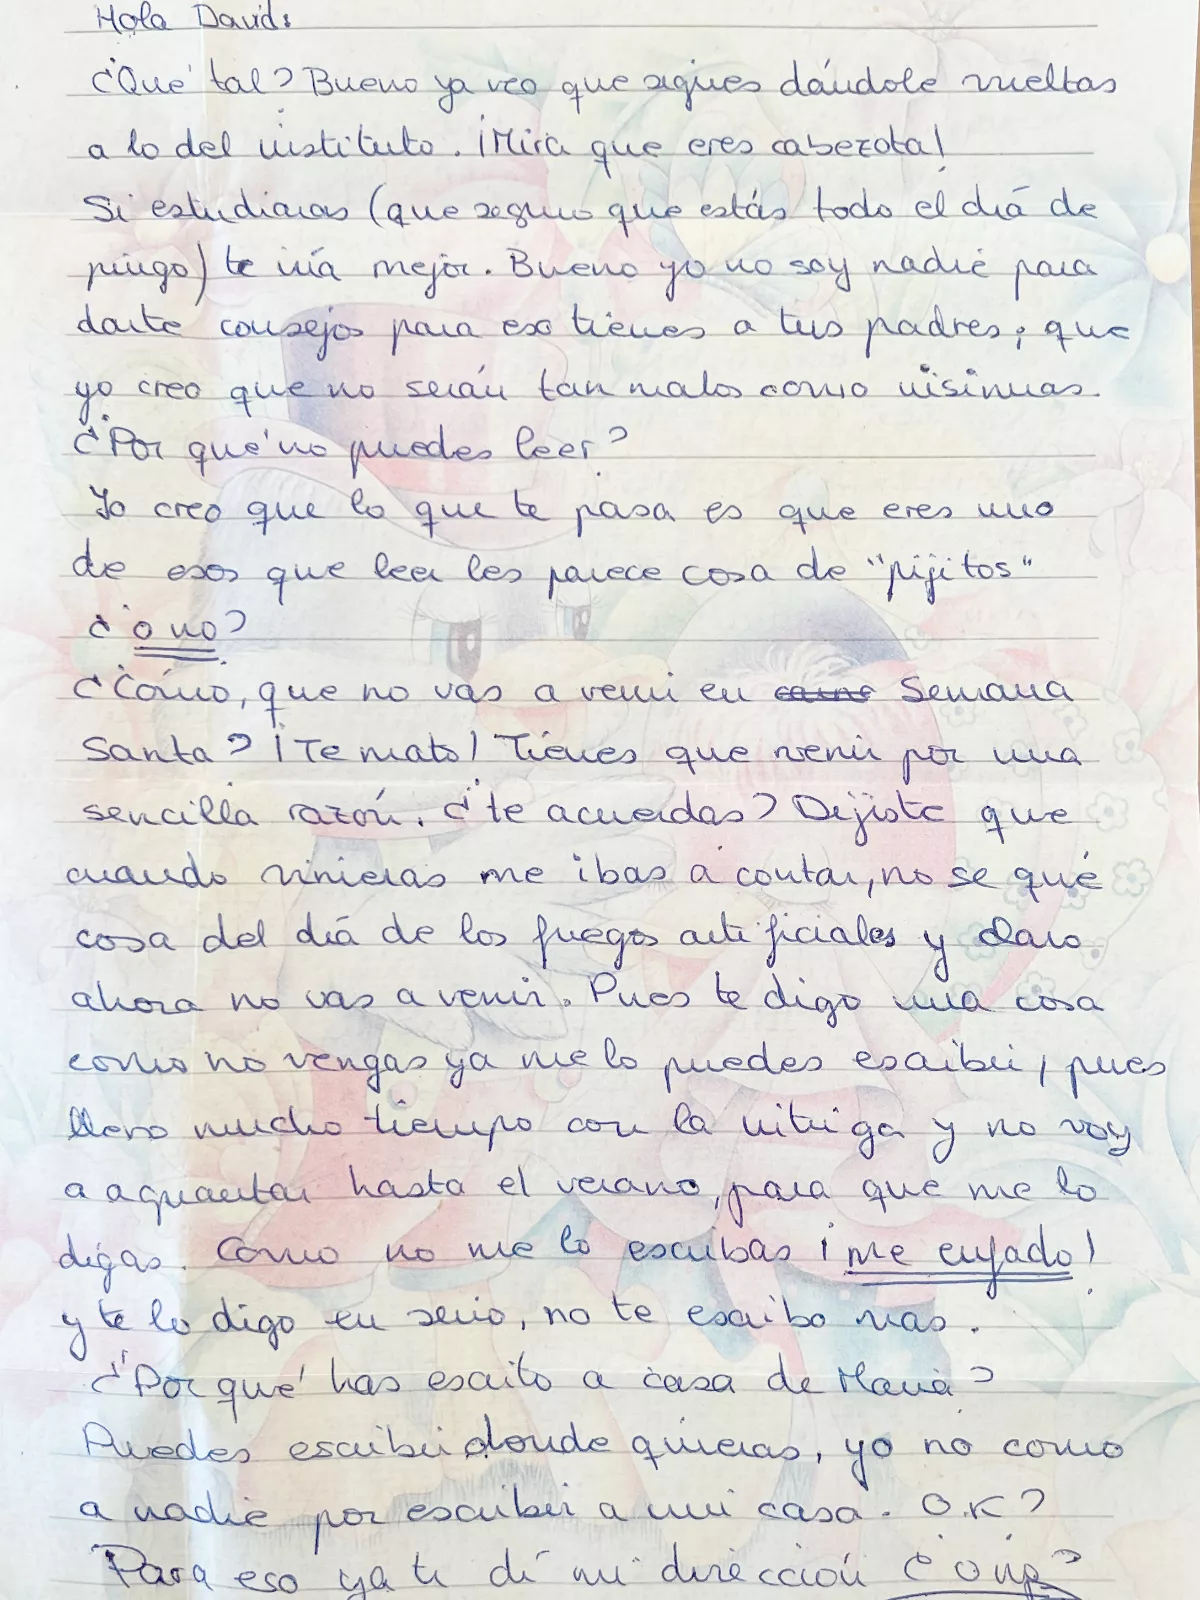 Hola David:
¿Qué tal? Bueno ya veo que sigues dándole vueltas
a lo del instituto. ¡Mira que eres cabezota!
Si estudiaras (que seguro que estás todo el día de
pingo) te iría mejor. Bueno yo no soy nadie para
darte consejos para eso tienes a tus padres; que
yo creo que no serán tan malos como insinuas.
¿Por qué no puedes leer?
Yo creo que lo que te pasa es que eres uno
de esos que leer les parece cosa de "pijitos"
¿o no?
¿Cómo, que no vas a venir en Semana
Santa? ¡Te mato! Tienes que venir por una
sencilla razón. ¿te acuerdas? Dijiste que
cuando vinieras me ibas a contar, no se qué
cosa del día de los fuegos artificiales y claro
ahora no vas a venir. Pues te digo una cosa
como no vengas ya me lo puedes escribir, pues
llevo mucho tiempo con la intriga y no voy
a aguantar hasta el verano, para que me lo
digas. Como no me lo escribas ¡me enfado!
y te lo digo en serio, no te escribo mas.
¿Por qué has escrito a casa de María?
Puedes escribir donde quieras, yo no como
a nadie por escribir a mi casa. O.K?
Para eso ya te dí mi dirección ¿o no?